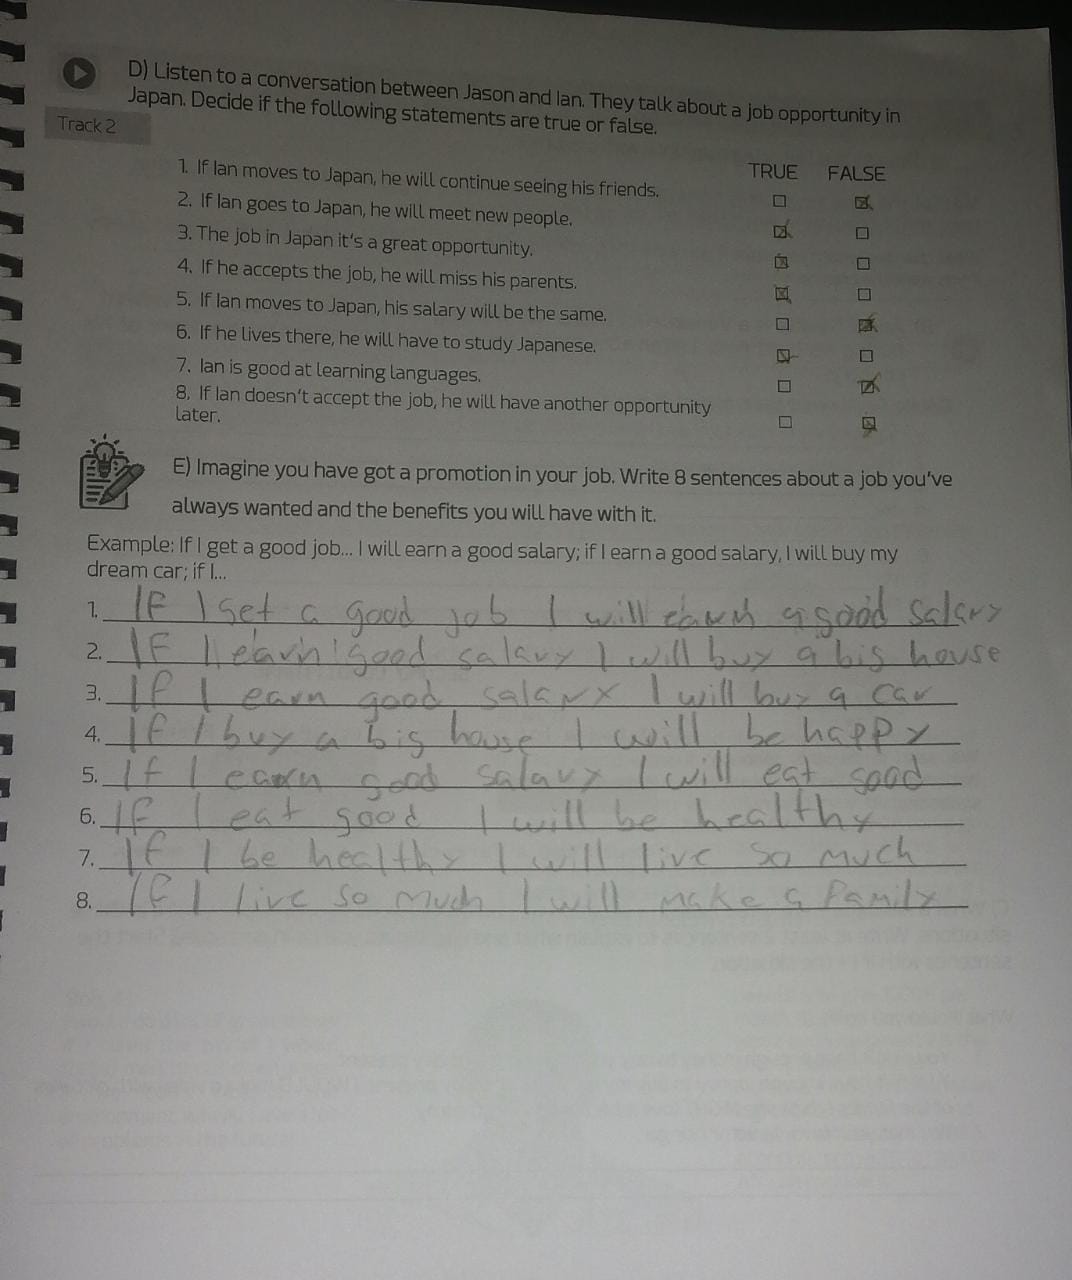 D) Listen to a conversation between Jason and Ian. They talk about a job opportunity in
Japan. Decide if the following statements are true or false.
Track 2
TRUE FALSE
1. If Ian moves to Japan, he will continue seeing his friends.
2. If Ian goes to Japan, he will meet new people.
3. The job in Japan it's a great opportunity.
4. If he accepts the job, he will miss his parents.
5. If Ian moves to Japan, his salary will be the same.
6. If he lives there, he will have to study Japanese.
7. Ian is good at learning languages.
8. If Ian doesn't accept the job, he will have another opportunity
later.
E) Imagine you have got a promotion in your job. Write 8 sentences about a job you've
always wanted and the benefits you will have with it.
Example: If I get a good job... I will earn a good salary; if I earn a good salary, I will buy my
dream car; if I...
1. If I get a good job I will earn a good salary
2. If I earn good salary I will buy a big house
3. If I earn good salary I will buy a car
4. If I buy a big house I will be happy
5. If I earn good salary I will eat good
6. If I eat good I will be healthy
7. If I be healthy I will live so much
8. If I live so much I will make a family